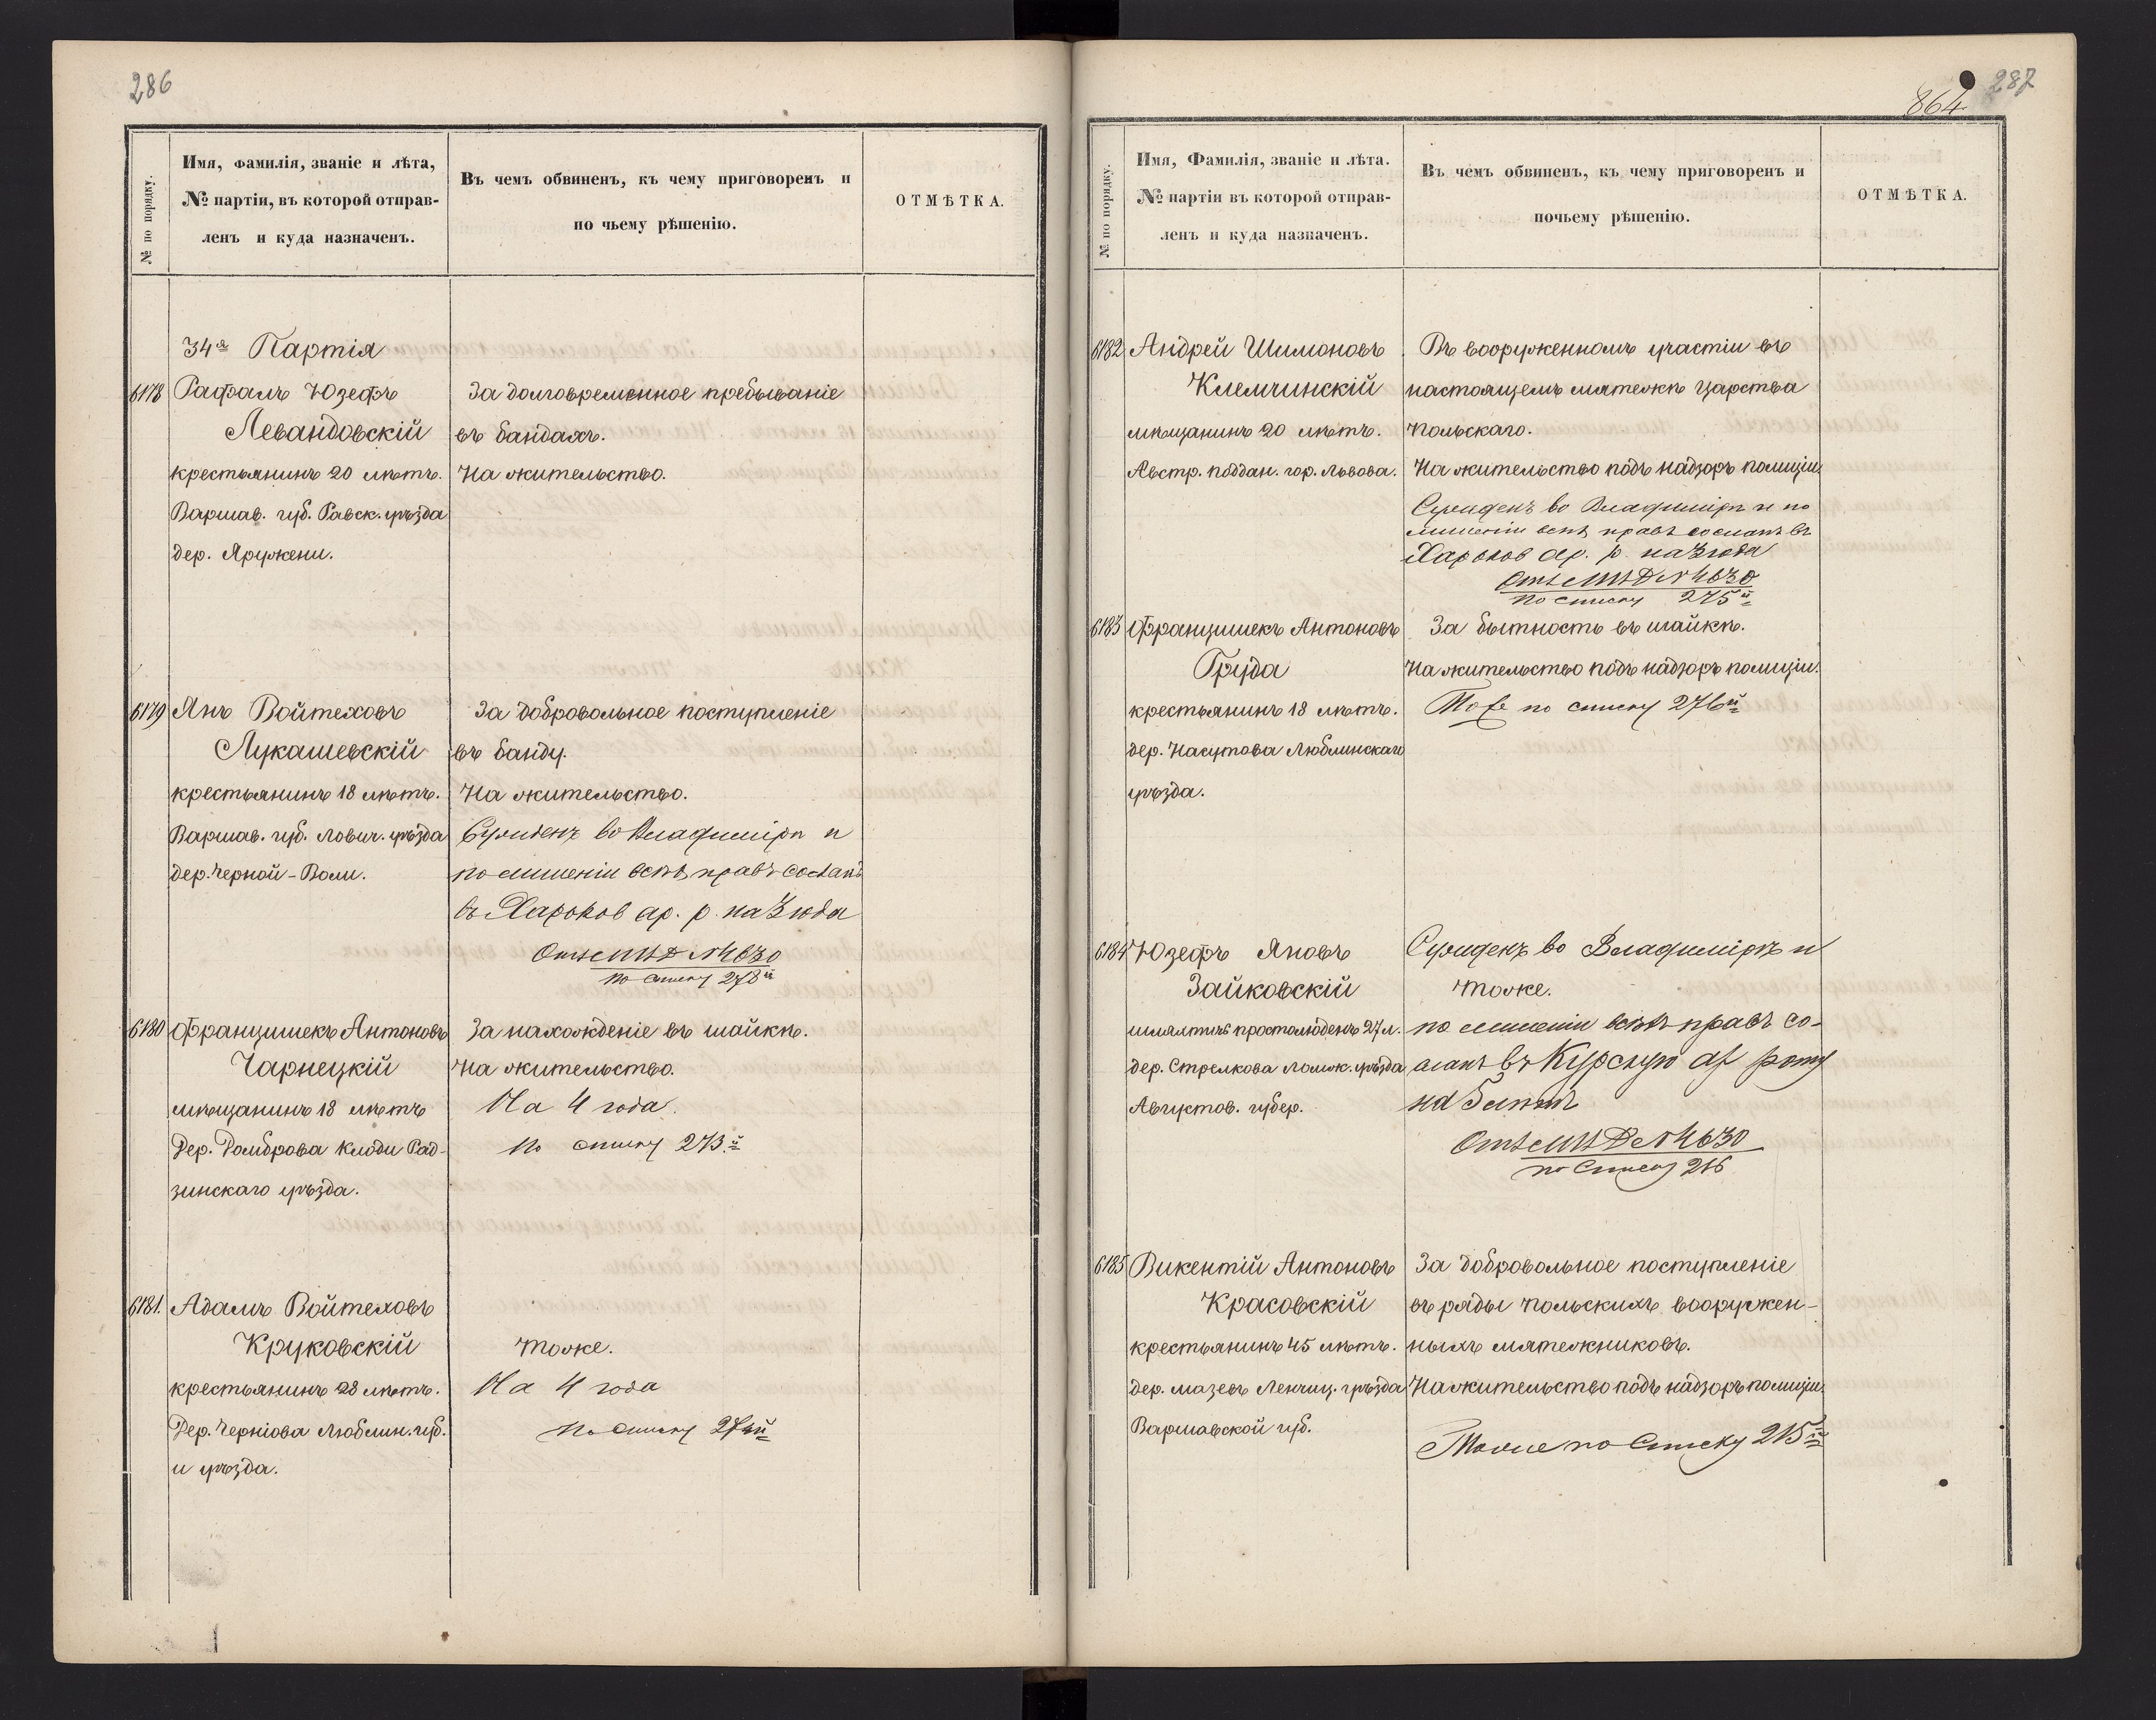 286
№ по порядку.
Имя, фамилія, званіе и лѣта,
№ партіи, въ которой отправ-
ленъ и куда назначенъ.
Въ чемъ обвиненъ, къ чему приговоренъ и
по чьему рѣшенію.
ОТМѢТКА.
34я Партія
6178 Рафалъ Юзефъ
Левандовскій
крестьянинъ 20 лѣтъ.
Варшав. губ. Равск. уѣзда
дер. Яружени.
За долговременное пребываніе
въ бандахъ.
На жительство.
6179 Янъ Войтеховъ
Лукашевскій
крестьянинъ 18 лѣтъ.
Варшав. губ. Лович. уѣзда
дер. Черной-Воли.
За добровольное поступленіе
въ банду.
На жительство.
Сужденъ во Владимірѣ и
по лишеніи всѣхъ правъ сосланъ
въ Харьков ар. р. на 3 года
Отн МВД № 4630
по списку 278й
6180 Францишекъ Антоновъ
Чарнецкій
мѣщанинъ 18 лѣтъ
Дер. Домброва Клоди Рад-
зинскаго уѣзда.
За нахожденіе въ шайкѣ.
На жительство.
На 4 года.
по списку 273й
6181. Адамъ Войтеховъ
Круковскій
крестьянинъ 28 лѣтъ.
Дер. Черніова Люблин. губ.
и уѣзда.
Тоже.
На 4 года
по списку
287
864
№ по порядку.
Имя, Фамилія, званіе и лѣта.
№ партіи въ которой отправ-
ленъ и куда назначенъ.
Въ чемъ обвиненъ, къ чему приговоренъ и
почьему рѣшенію.
ОТМѢТКА.
6182 Андрей Шимоновъ
Клемчинскій
мѣщанинъ 20 лѣтъ.
Австр. поддан. гор. Львова.
Въ вооруженномъ участіи въ
настоящемъ мятежѣ Царства
Польскаго.
На жительство подъ надзоръ полиціи
Сужденъ во Владимірѣ и по
лишеніи всѣхъ правъ сосланъ въ
Харьков ар. р. на 3 года
Отн МВД № 4630
по списку 275й
6183 Францишекъ Антоновъ
Груда
крестьянинъ 18 лѣтъ.
дер. Насутова Люблинскаго
уѣзда.
За бытность въ шайкѣ.
На жительство подъ надзоръ полиціи.
Тоже по списку 276й
6184 Юзефъ Яновъ
Зайковскій
шляхтичъ простолюденъ 27 л.
дер. Стрелкова Ломж. уѣзда
Августов. губер.
Сужденъ во Владимірѣ и
Тоже.
по лишеніи всѣхъ правъ со-
сланъ въ Курскую ар роту
на 5 лѣтъ
Отн МВД № 4630
по Списку 216
6185 Викентій Антоновъ
Красовскій
крестьянинъ 45 лѣтъ.
дер. Мазевъ Ленчиц. уѣзда
Варшавской губ.
За добровольное поступленіе
въ ряды Польскихъ вооружен-
ныхъ мятежниковъ.
На жительство подъ надзоръ полиціи.
Тоже по Списку 215й